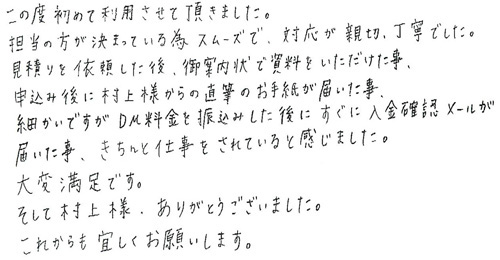 この度初めて利用させて頂きました。
担当の方が決まっている為スムーズで、対応が親切、丁寧でした。
見積りを依頼した後、御案内状で資料をいただけた事、
申込み後に村上様からの直筆のお手紙が届いた事、
細かいですがDM料金を振込みした後にすぐに入金確認メールが
届いた事、きちんと仕事をされていると感じました。
大変満足です。
そして村上様、ありがとうございました。
これからも宜しくお願いします。